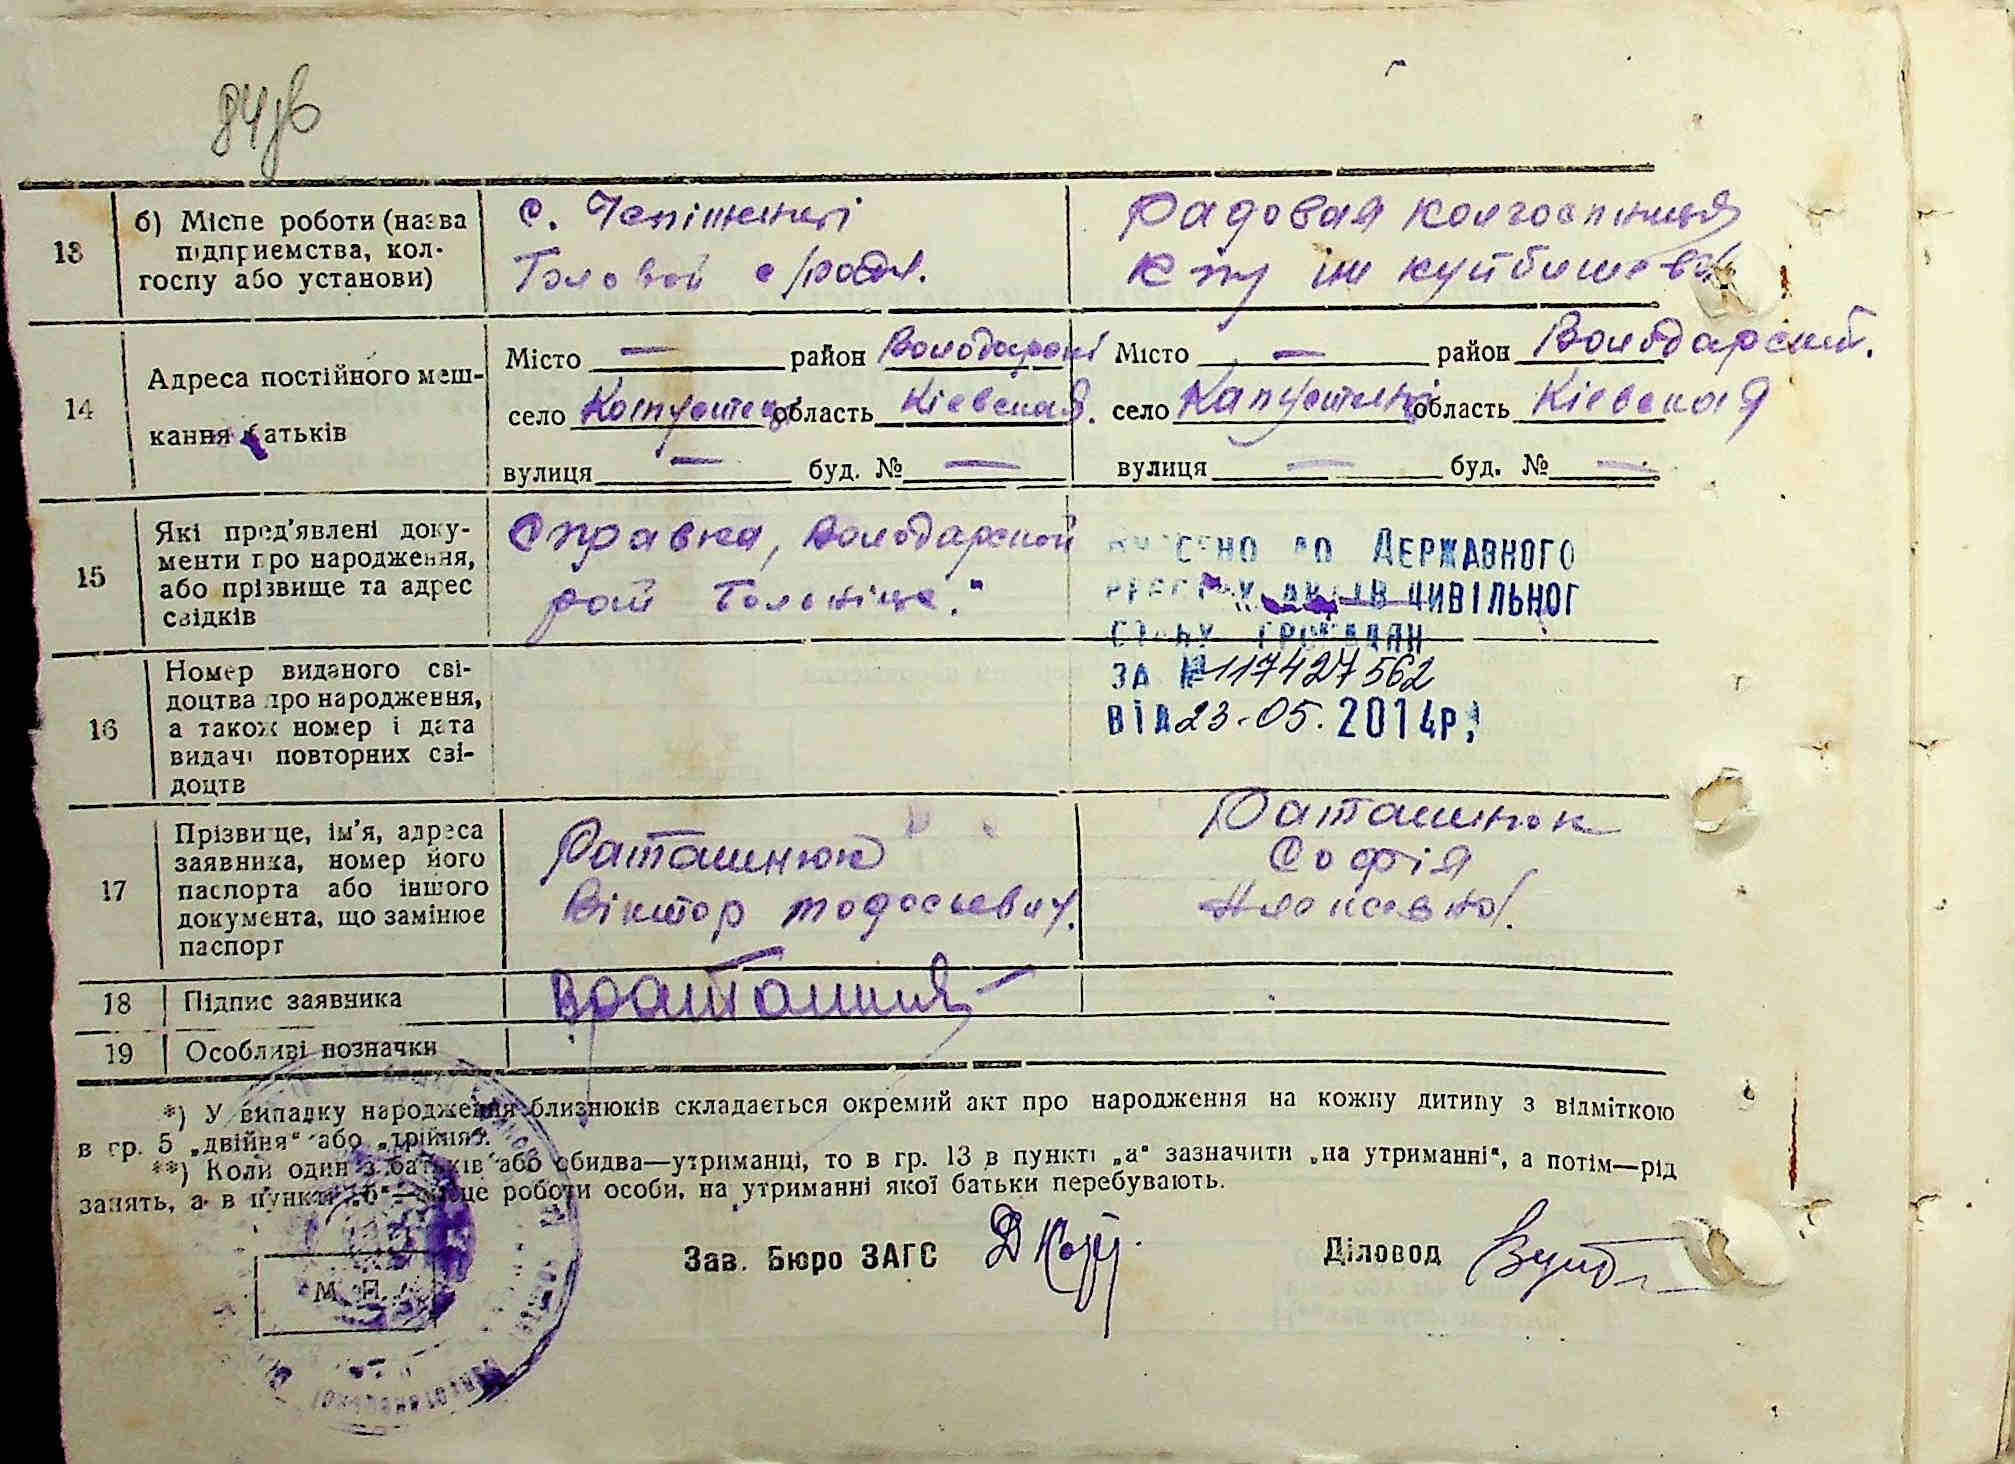 84зв
13
б) Місце роботи (назва
підприємства, кол-
госпу або установи)
с.
Головой с/рады.
Радовая колгоспниця
к-пу им куйбишева
14
Адреса постійного меш-
кання батьків
Місто — район Володарскі
село область Кіевская.
вулиця — буд. № —
Місто — район Володарский.
село Капустинці область Кіевская
вулиця — буд. № —
15
Які пред'явлені доку-
менти про народження,
або прізвище та адрес
свідків
Справка, Володарской
рай Больніце."
ВНЕСЕНО ДО ДЕРЖАВНОГО
РЕЄСТРУ АКТІВ ЦИВІЛЬНОГ
СТАНУ ГРОМАДЯН
ЗА № 117427562
ВІД 23-05.2014р.
16
Номер виданого сві-
доцтва про народження,
а також номер і дата
видачі повторних сві-
доцтв
17
Прізвище, ім'я, адреса
заявника, номер його
паспорта або іншого
документа, що замінює
паспорт
Раташнюк
Віктор тодосьевич.
Раташнюк
Софія
18
Підпис заявника
19
Особливі позначки
*) У випадку народження близнюків складається окремий акт про народження на кожну дитину з відміткою
в гр. 5 „двійня" або „трійня".
**) Коли один з батьків або обидва—утриманці, то в гр. 13 в пункті „а" зазначити „на утриманні", а потім—рід
занять, а в пункті „б"—місце роботи особи, на утриманні якої батьки перебувають.
Зав. Бюро ЗАГС
Діловод
М. П.